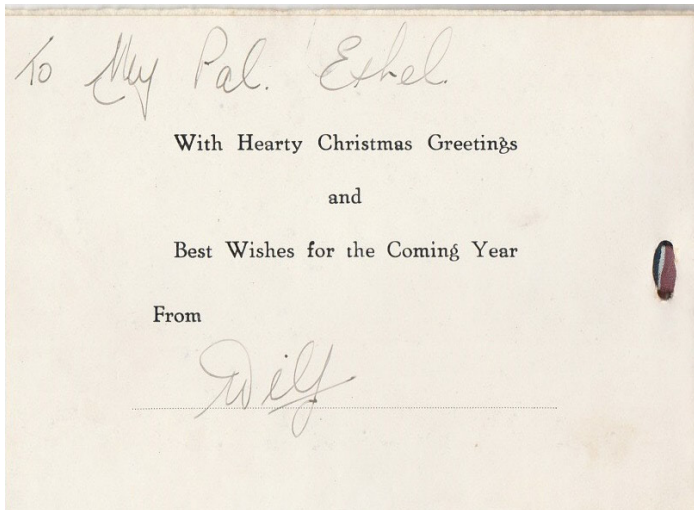 To My Pal. Ethel.
With Hearty Christmas Greetings
and
Best Wishes for the Coming Year
From
Wilf